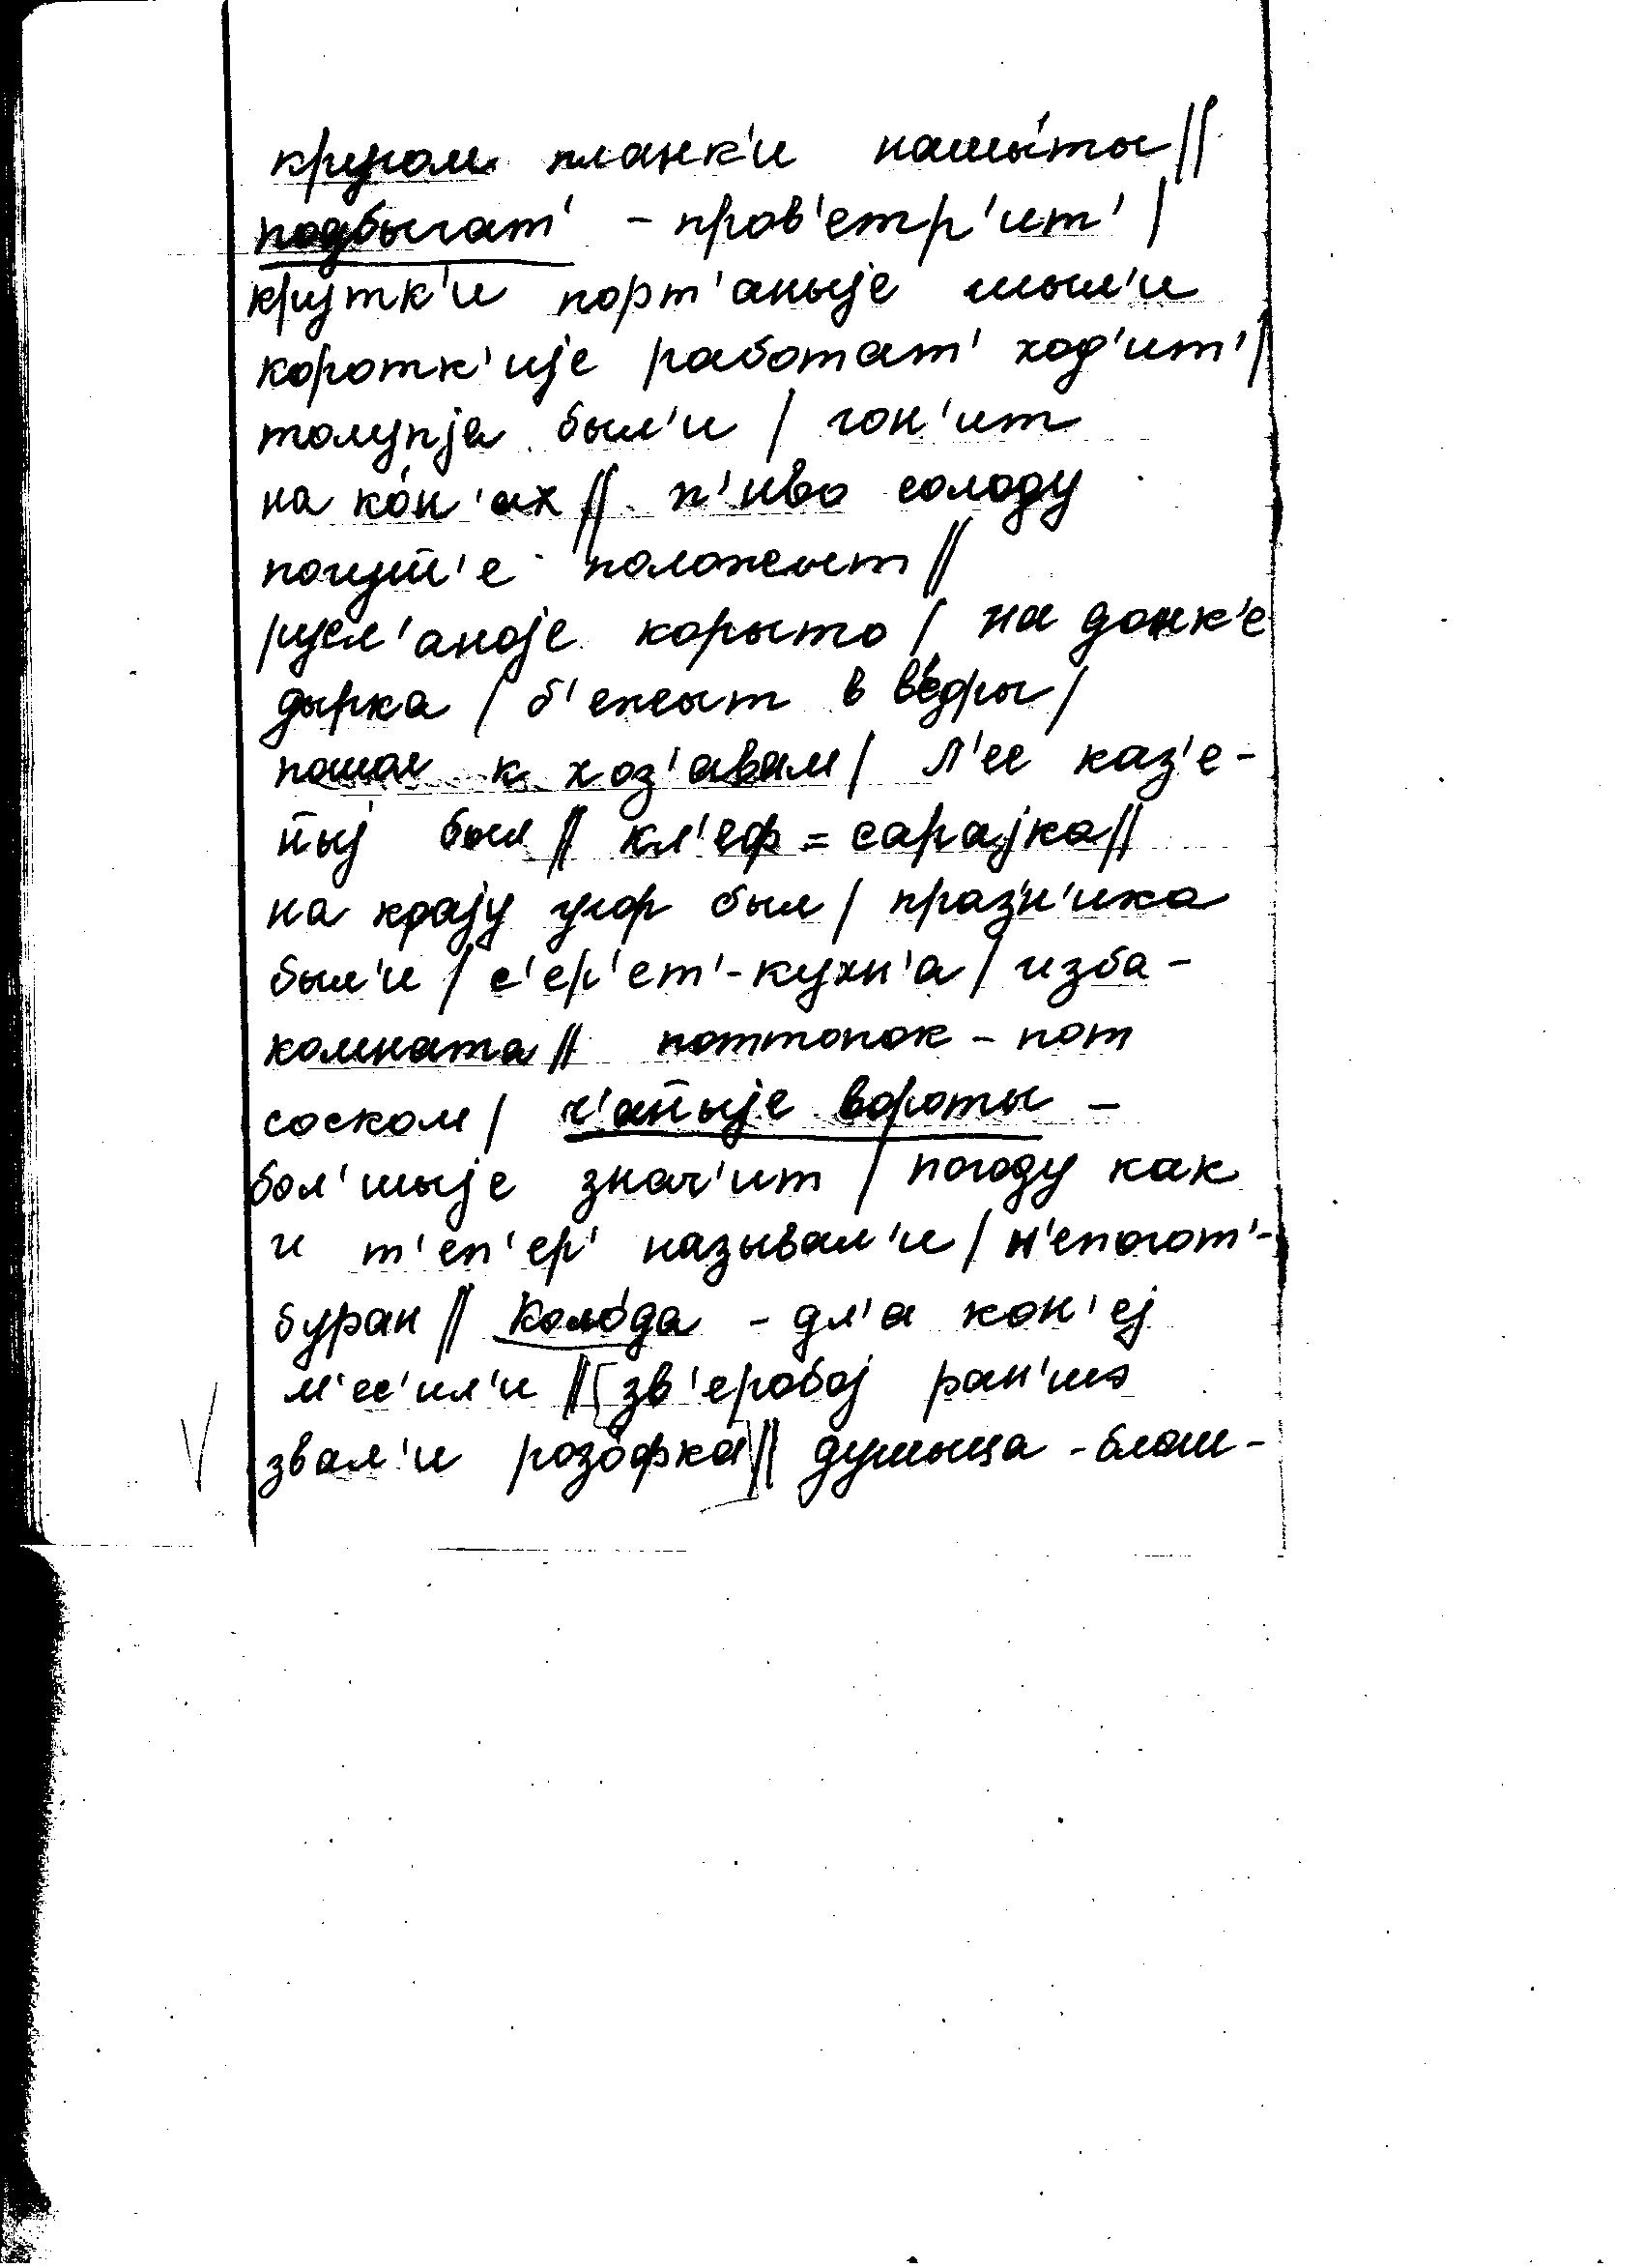 кругом планк'и нашы́ты //
подбыгат' – пров'етр'ит' /
крутк'и порт'аныје шыл'и
коротк'ије работат' ход'ит' /
толупја был'и / гон'ит
на ко́н'ах // п'иво солоду
погуш̅'е положыт //
рцел'аноје корыто / на донк'е
дырка / б'ежыт в в'едры /
пошол к хоз'авам / л'ес каз'е-
н̅ыј был // кл'еф = сарајка //
на крају угор был / праз'н'ика
был'и / с'ер'ет'-кухн'а / изба –
комната // поттопок – пот
соском / ч'ан̅ыје вороты –
бол'шыје знач'ит / погоду как
и т'еп'ер' называл'и / н'епогот'-
буран // коло́да – дл'а кон'еј
м'ес'ил'и // [зв'еробој ран'шэ
звал'и розо́фка] // душыца - блош-